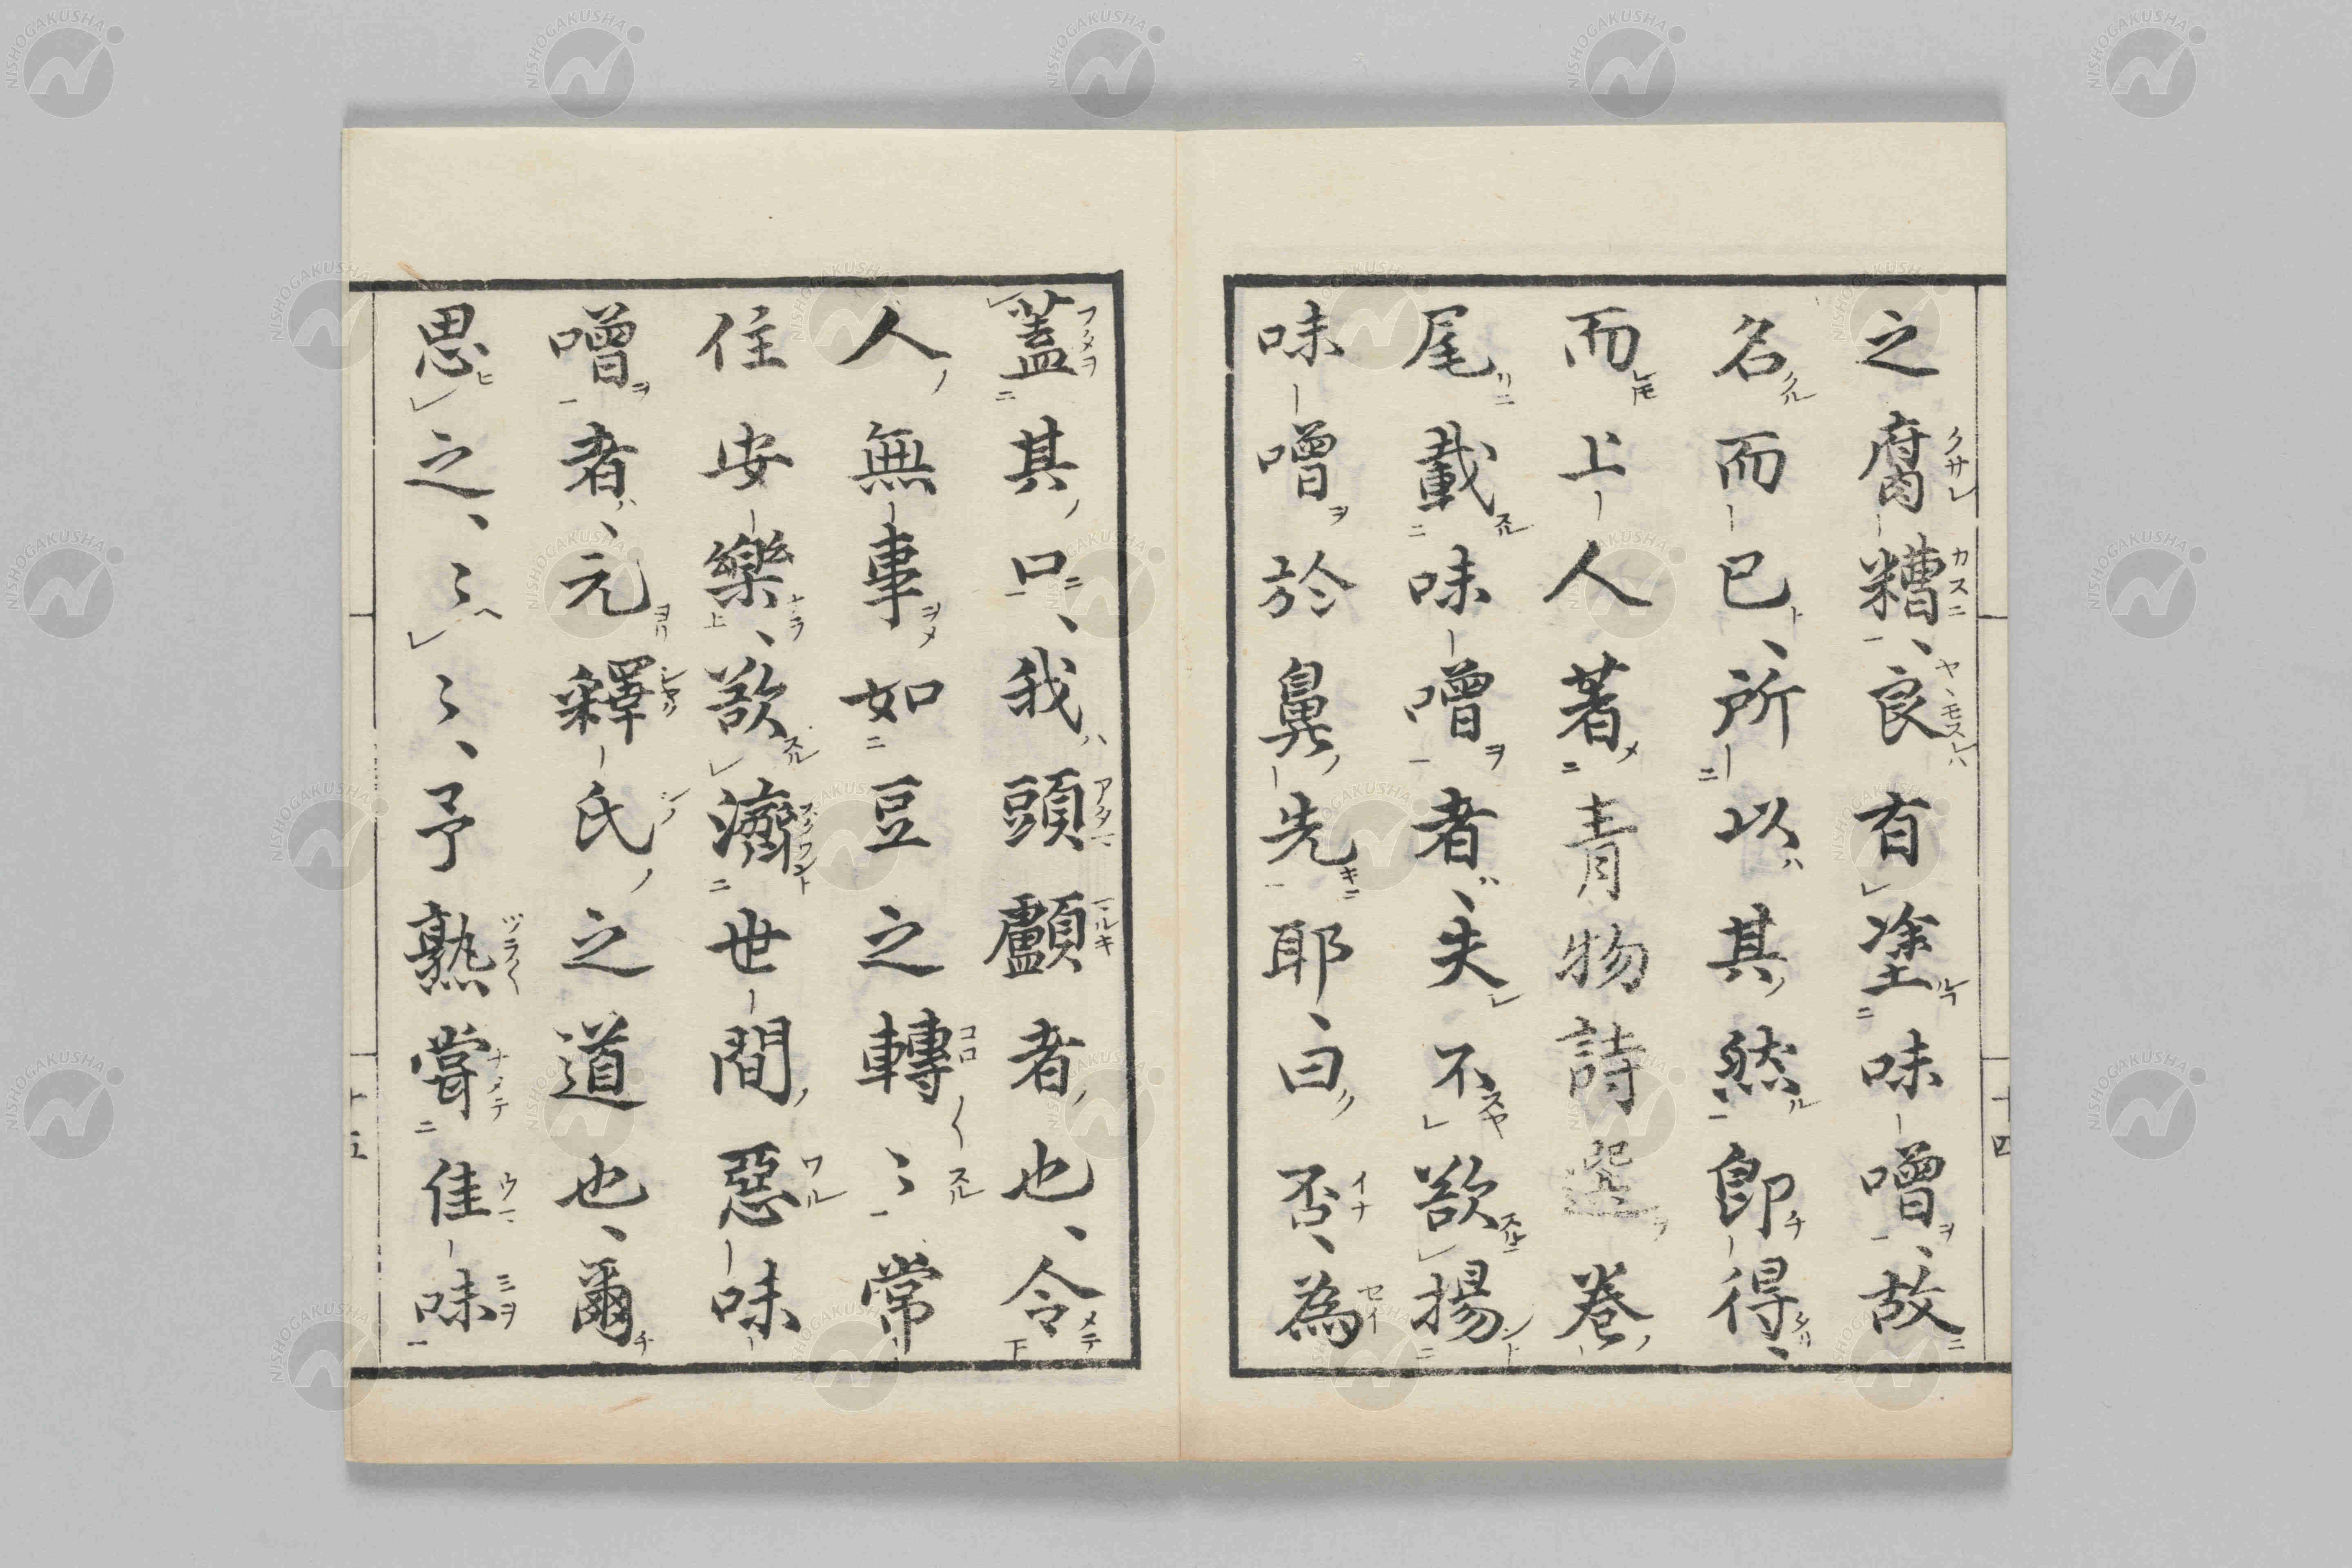 之腐糟、良有塗味噌、故
名而已、所以其然卽得、
而上人著青物詩選卷
尾載味噌者、夫不欲揚
味噌於鼻先耶、曰否、為
十四
蓋其口、我頭顱者也、令
人無事如豆之轉〻常
住安樂、欲濟世間惡味
噌者、元釋氏之道也、爾
思之、〻〻、予熟嘗佳味
十五